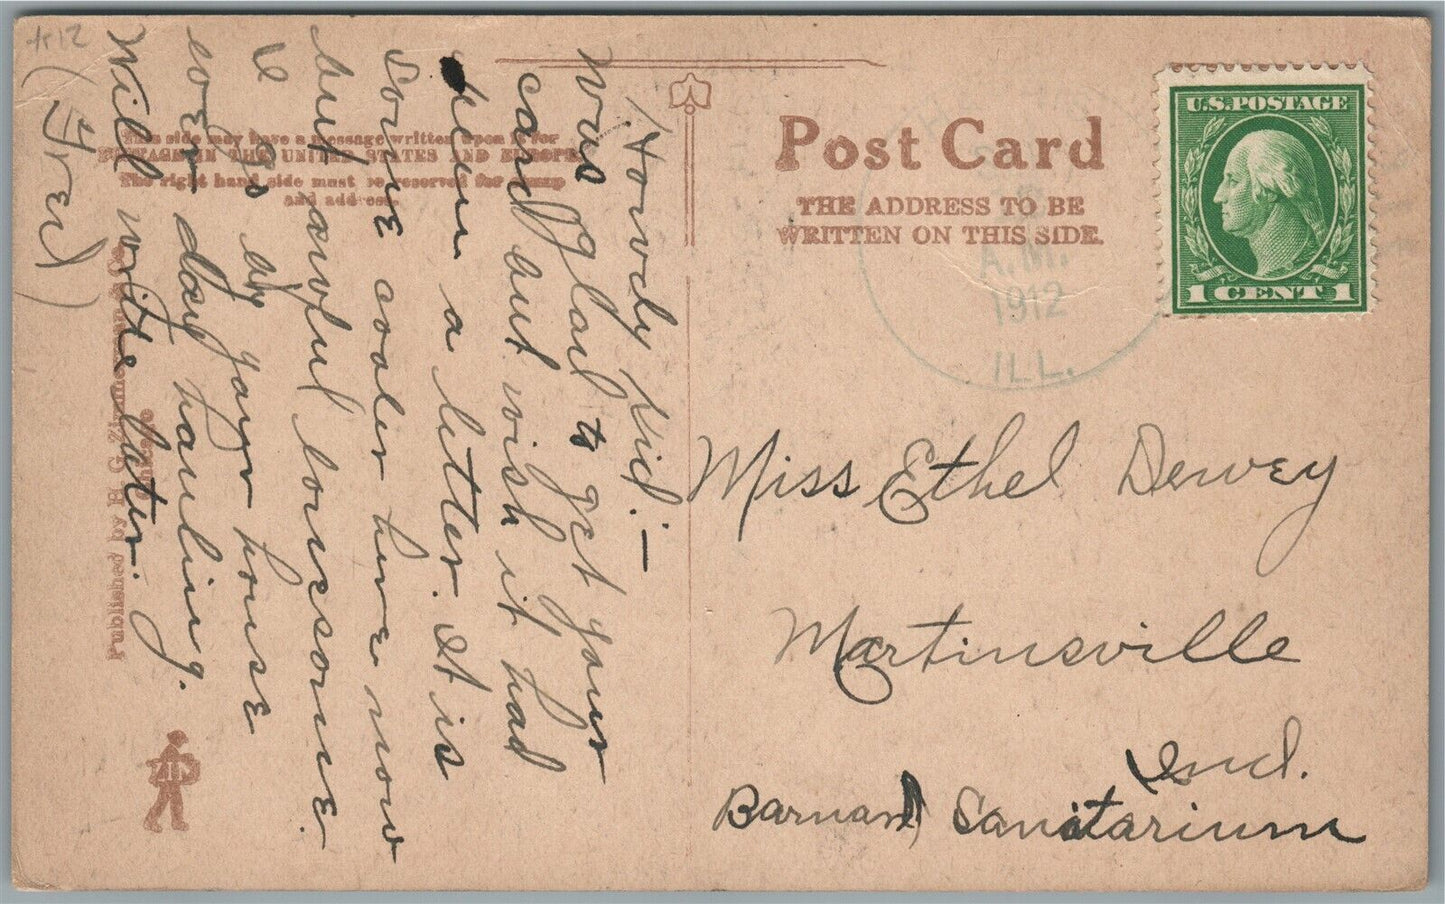 Post Card
THE ADDRESS TO BE
WRITTEN ON THIS SIDE.
U.S. POSTAGE
1 CENT 1
A.M.
1912
ILL.
This side may have a message written upon it for
POSTAGE IN THE UNITED STATES AND EUROPE
The right hand side must be reserved for stamp
and address.
Howdy Kid:—
Was glad to get your
card but wish it had
been a letter. It is
some cooler here now
but awful lonesome.
I go by your house
every day hauling.
Will write later.
(Fred)
Miss Ethel Dewey
Martinsville
Ind.
Barnard Sanitarium
Published by H. G. Zimmerman & Co.
Chicago
ZIM